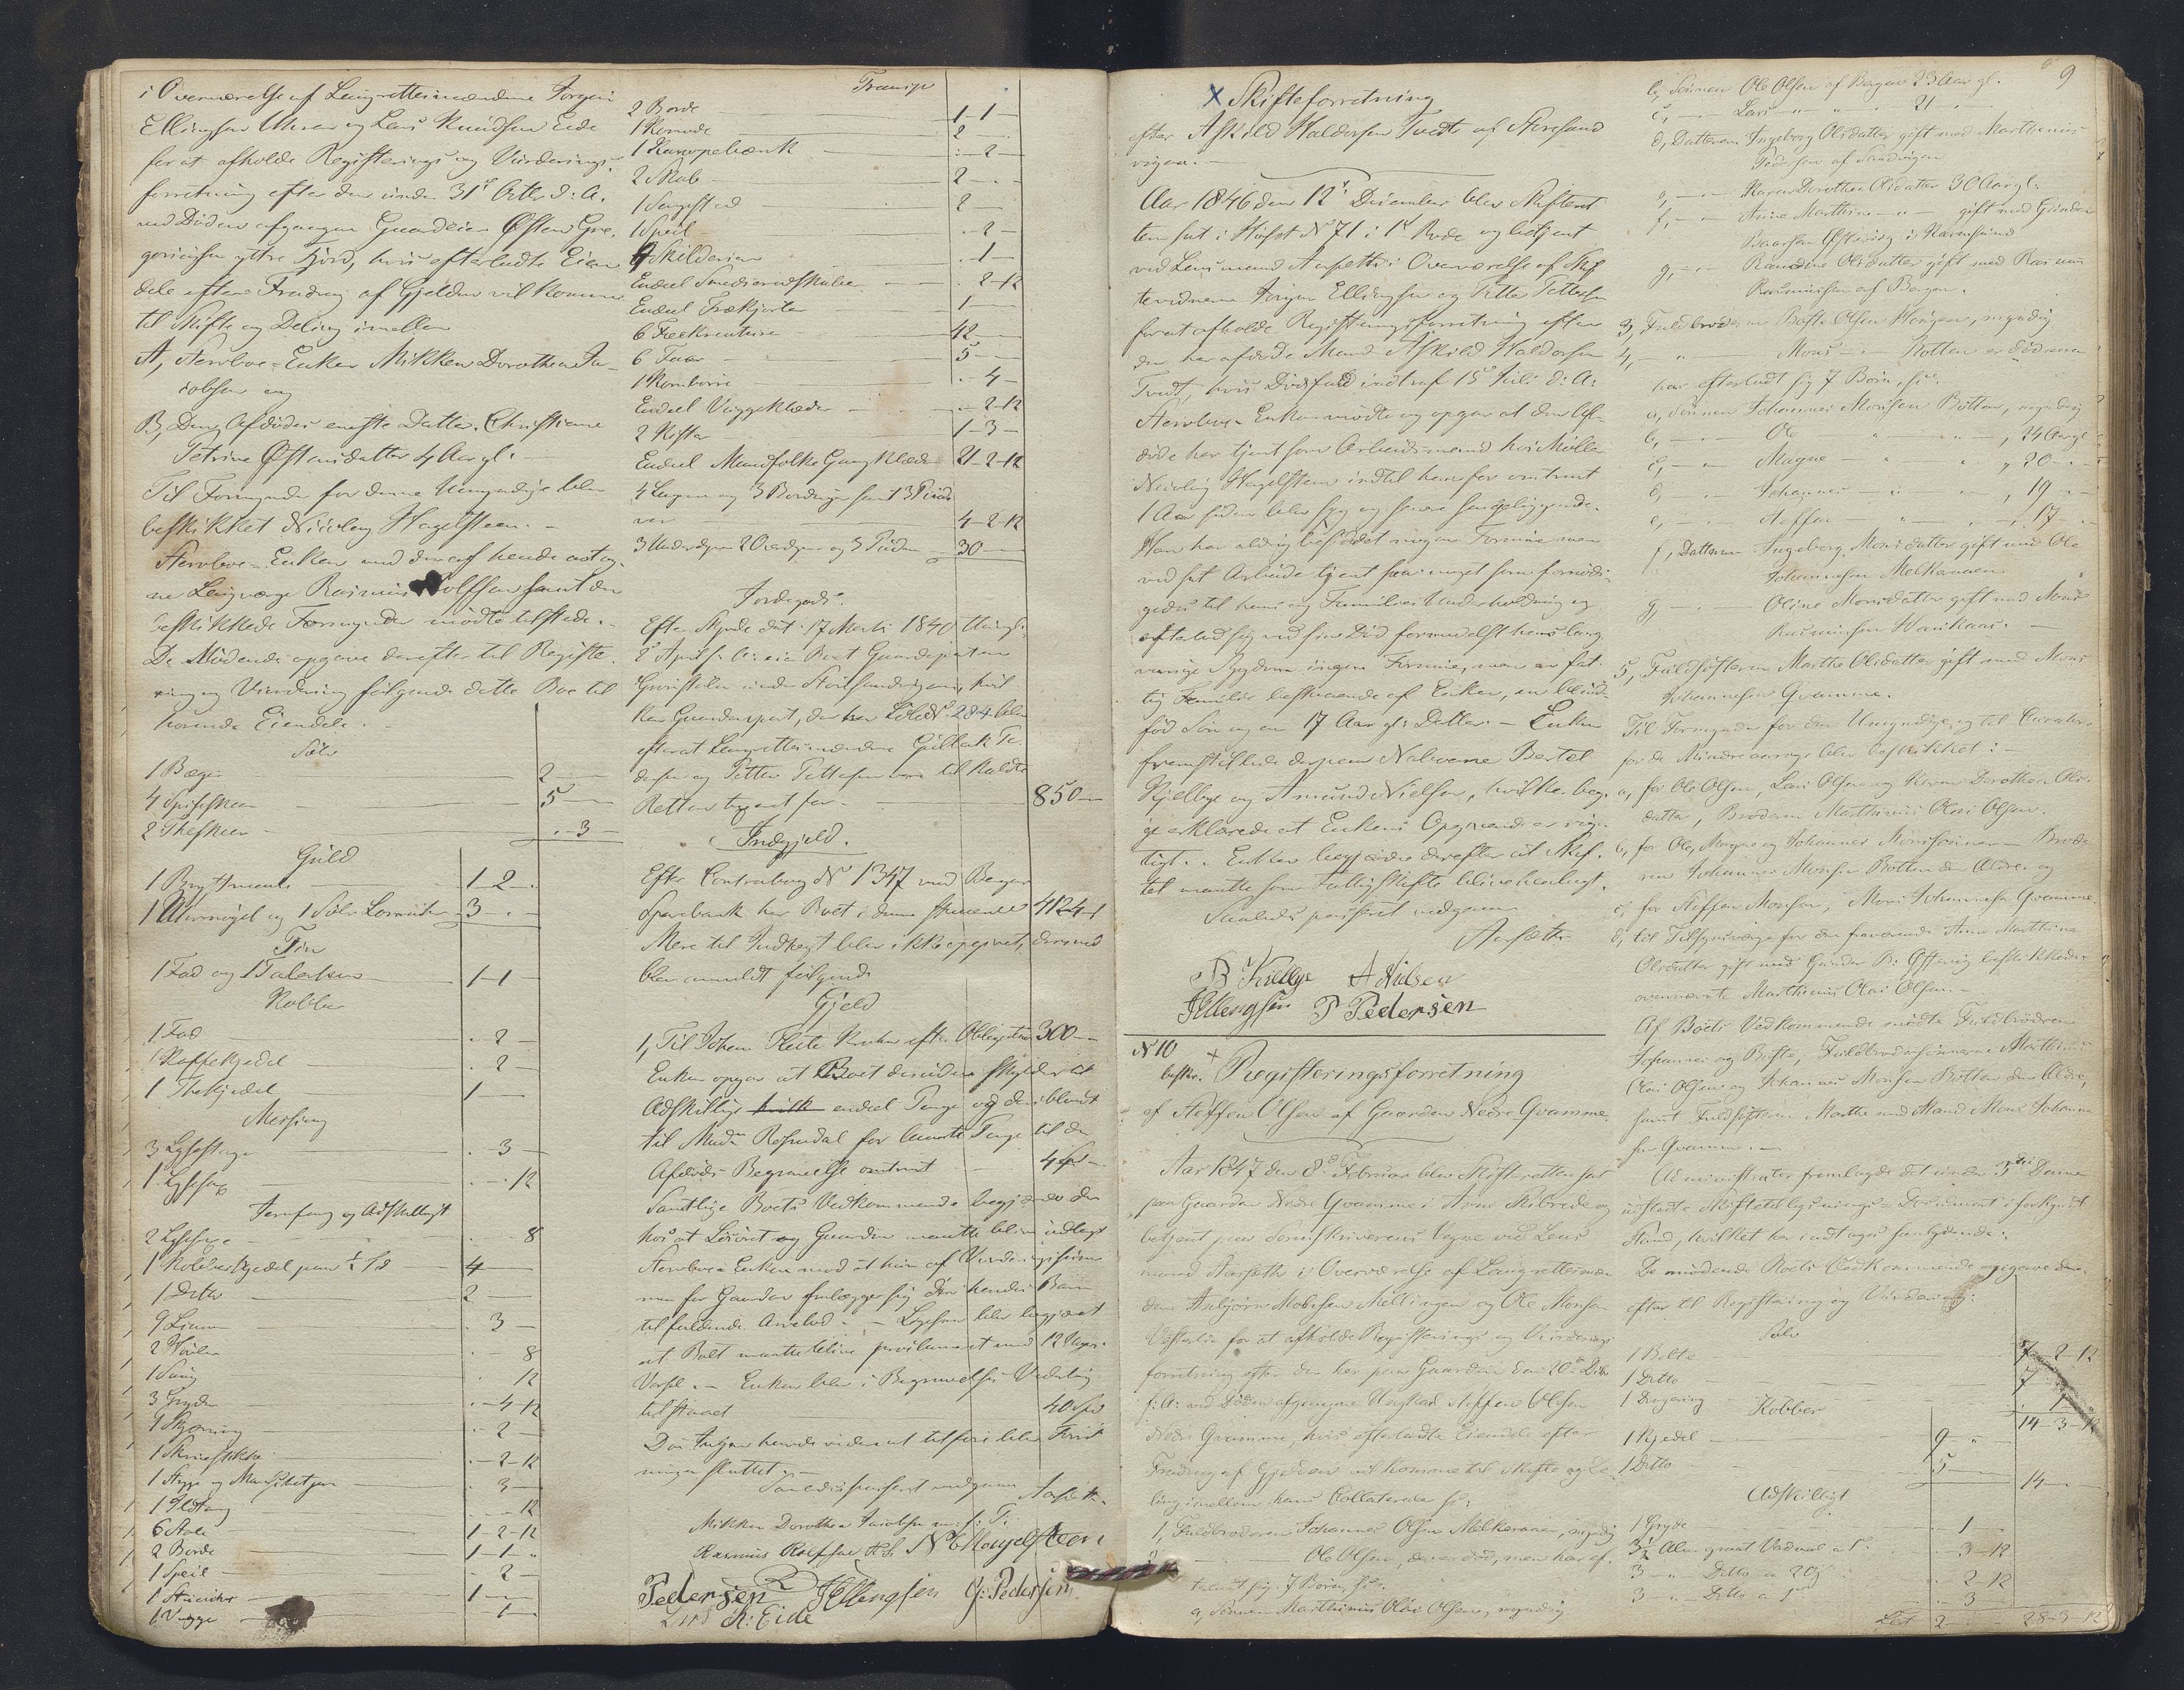 i Overværelse af Laugrettesmændene Jørgen
Ellingsen Uhren og Lars Knudsen Eide
for at afholde Registerings og Vurderings-
forretning efter den under 31te Octbr d: A.
ved Døden afgangne Gaardeier Østen Gre-
goriusen yttre Fjøro, hvis efterladte Eien
dele efter Fradrag af Gjelden vil komme
til Skifte og Deling imellem
A, Stervboe-Enken Mikken Dorothea Ja-
cobsen og
B, Den Afdødes eneste Datter Christiane
Petrine Østensdatter 4 Aar gl. -
Til Formynder for denne Umyndige blev
beskikket Nicolay Hagelsteen. -
Stervboe-Enken med den af hende antag-
ne Laugværge Rasmus Rolfsen samt den
beskikkede Formynder mødte tilstede. -
De Mødende opgave derefter til Registe-
ring og Vurdering følgende dette Boe til
hørende Eiendele. -
Sølv
1 Bæger 2 -
4 Spiseskeer 5 -
2 Theskeer - 3 -
Guld
1 1-2-
1 og 1 Sølv 3 - -
Tin
1 Fad og 1 Talerken 1-1
Kobber
1 Fad - 2 -
1 Kaffekjedel - 2 -
1 Thekjedel 1 -
Messing
3 Lysestager - 3 -
1 Lysesax - - 12
Jernfang og Adskilligt
2 Lysesaxe - - 8
1 4 -
1 Ditto 2 -
9 - 3 -
2 Høvler - - 8
1 Saug - 12
3 Gryder - 4 12
1 - 2 -
1 - 2 - 12
1 - 3 -
1 Ildtang - - 12
6 Stole 1-2-12
2 Borde 1-1-
1 Speil - 2 -
1 1 -
1 Vugge - 1 -
Transp
2 Borde 1-1-
1 Komode 2 -
1 Kanapebænk - 2 -
2 Skab 2 - -
1 Sengested 2 -
1 Speil - 2 -
9 Skilderier - 1 -
Endeel - 2-12
Endeel Trækjørler 1 -
6 Feekreaturer 42 -
6 Faar 5 -
1 Kornbørre - 4 -
Endeel - 2-12
2 Kister 1-3-
Endeel Mandfolke Gangklæder 21-2-12
4 Lagner og 3 samt 3
4-2-12
3 Underdyner 2 Overdyner og 3 Puder 30 -
Jordegods.
Efter Skjøde dat: 17 Marti 1840 thingl:
2 April s: A: eier Boet Gaardeparten
under Storesandvigen, hvil
ken Gaardepart, der har Løbe No 284 blev
efterat Laugrettesmændene Gulleik Pe-
dersen og Petter Pettersen vare til kaldte
Retten taxeret for. - 850 -
Indgjeld.
Efter Contrabog No 1347 med Bergens
Sparebank har Boet i denne 412-4-1
Mere til Indtægt blev ikke opgivet, dermed
blev anmeldt følgende
Gjeld
1, Til Johan efter Obligation 300 -
Enken opgav at Boet desuden skylder til
Adskillige endeel Penge og deriblandt
til Mad: Rosendal for laante Penge til den
Afdødes Begravelse omtrent 40 Spd -
Samtlige Boets Vedkommende begjærede der
hos at Løsøret og Gaarden maatte blive udlagt
Stervboe Enken mod at hun af Vurderingssum
men for Gaarden forlægger sig den hendes Barn
tilfaldende Arvelod. - Ligesom blev begjæret
at Boet maatte blive proclameret med 12 Ugers
Varsel. - Enken blev i Begravelses Vederlag
tilstaaet 40 Spd
Da Ingen havde videre at tilføre blev Forret
ningen sluttet. -
Saaledes passeret vedgaaer Aarsæth.
Mikken Dorothea Jacobsen m: f: P:
Rasmus Rolfsen N C Hagelsteen
Pedersen J Ellengsen G: Pedersen
Lars K: Eide
9
x Skifteforretning
efter Askild Haldorsen Tvedt af Storesand
vigen. -
Aar 1846 den 12te December blev Skifteret
ten sat i Huset No 71 i 1ste Rode og betjent
ved Lensmand Aarsæth i Overværelse af Skif
tevidnerne Jørgen Ellingsen og Petter Pettersen
for at afholde Registeringsforretning efter
den her afdøde Mand Askild Haldorsen
Tvedt, hvis Dødsfald indtraf 15de Juli d: A:
Stervboe Enken mødte og opgav at den Af-
døde har tjent som Arbeidsmand hos Møller
Nicolay Hagelsteen indtil han for omtrent
1 Aar siden blev syg og senere sengeliggende.
Han har aldrig besiddet nogen Formue men
ved sit Arbeide tjent saa meget som fornødi-
gedes til hans og Families Underholdning og
efterlod sig ved sin Død formedelst hans lang
varige Sygdom ingen Formue, men en fat-
tig Familie bestaaende af Enken, en blind
fød Søn og en 17 Aar gl: Datter. - Enken
fremstillede derpaa Naboerne Bertel
Kjelbye og Amund Nielsen, hvilke beg-
ge erklærede at Enkens Opgivende er rig-
tigt. - Enken begjærede derefter at Skif-
tet maatte som Fattigskifte blive henlagt.
Saaledes passeret vedgaaer
Aarsæth.
B Kielbye A Nilsen
J Ellengsen P Pedersen
No 10
beskr. x Registeringsforretning
af Steffen Olsen af Gaarden Nedre Qvamme.
Aar 1847 den 8de Februar blev Skifteretten sat
paa Gaarden Nedre Qvamme i Arne Skibrede og
betjent paa Sorenskriverens Vegne ved Lens
mand Aarsæth i Overværelse af Laugrettesmæn
dene Anbjørn Mellingen og Ole Monsen
for at afholde Registerings og Vurderings
forretning efter den her paa Gaarden den 20de Decbr
f: A: ved Døden afgangne Ungkarl Steffen Olsen
Nedre Qvamme, hvis efterladte Eiendele efter
Fradrag af Gjelden vil komme til Skifte og De-
ling imellem hans Collateraler so:
1, Fuldbroderen Johannes Olsen Melkeraaen, myndig
2, Ole Olsen, der er død, men har ef-
terladt sig 7 Børn, so:
a, Sønnen Marthinus Olai Olsen, myndig
b, Sønnen Ole Olsen af Bergen 23 Aar gl.
c, Lars 21
d, Datteren Ingeborg Olsdatter gift med Marthinus
Pedersen af Sandvigen
e, Karen Dorothea Olsdatter 30 Aar gl.
f, Anne Marthine gift med Gunder
Baarsen i Karmsund
g, Olsdatter gift med Rasmus
Rasmussen af Bergen.
3, Fuldbroderen Bofte Olsen Haugen, myndig
4, Mons Botten er død men
har efterladt sig 7 Børn, so:
a, Sønnen Johannes Monsen Botten, myndig
b, Ole , 24 Aar gl
c, Magne , 20
d, Johannes , 19
e, Steffen , 17
f, Datteren Ingeborg Monsdatter gift med Ole
Johannesen Melkeraaen
g, Oline Monsdatter gift med Mons
Rasmussen
5, Fuldsøsteren Marthe Olsdatter gift med Mons
Johannesen Qvamme.
Til Formynder for den Umyndige og til Curatorer
for de Mindreaarige blev beskikket: -
a, for Ole Olsen, Lars Olsen og Karen Dorothea Ols-
datter, Broderen Marthinus Olai Olsen.
b, for Ole, Magne og Johannes Monssønner Brode
ren Johannes Monsen Botten den Ældre og
c, for Steffen Monsen, Mons Johannesen Qvamme.
d, til Tilsynsværge for den fraværende Anne Marthine
Olsdatter gift med Gunder B: beskikkedes
ovennævnte Marthinus Olai Olsen. -
Af Boets Vedkommende mødte Fuldbrødrene
Johannes og Bofte, Fuldbrodersønnerne Marthinus
Olai Olsen og Johannes Monsen Botten den Ældre,
samt Fuldsøsteren Marthe med Mand Mons Johanne
sen Qvamme. -
Administrator fremlagde det under 3die Dennes
udstedte Skiftetillysnings-Document i forkyndt
Stand, hvilket her indtages saalydende:
De mødende Boets Vedkommende opgave der-
efter til Registering og Vurdering:
Sølv
1 Belte 7-2-12
1 Ditto 7
1 1
14-3-12
Kobber
1 Kjedel 9 - -
1 Ditto 5
14 -
Adskilligt
1 Gryde - 1 -
3½ Alen graat Vadmel - 3-12
3 - Ditto a 20 s - 2-12
3 - Ditto a - 3 -
Lat 2 28-3-12